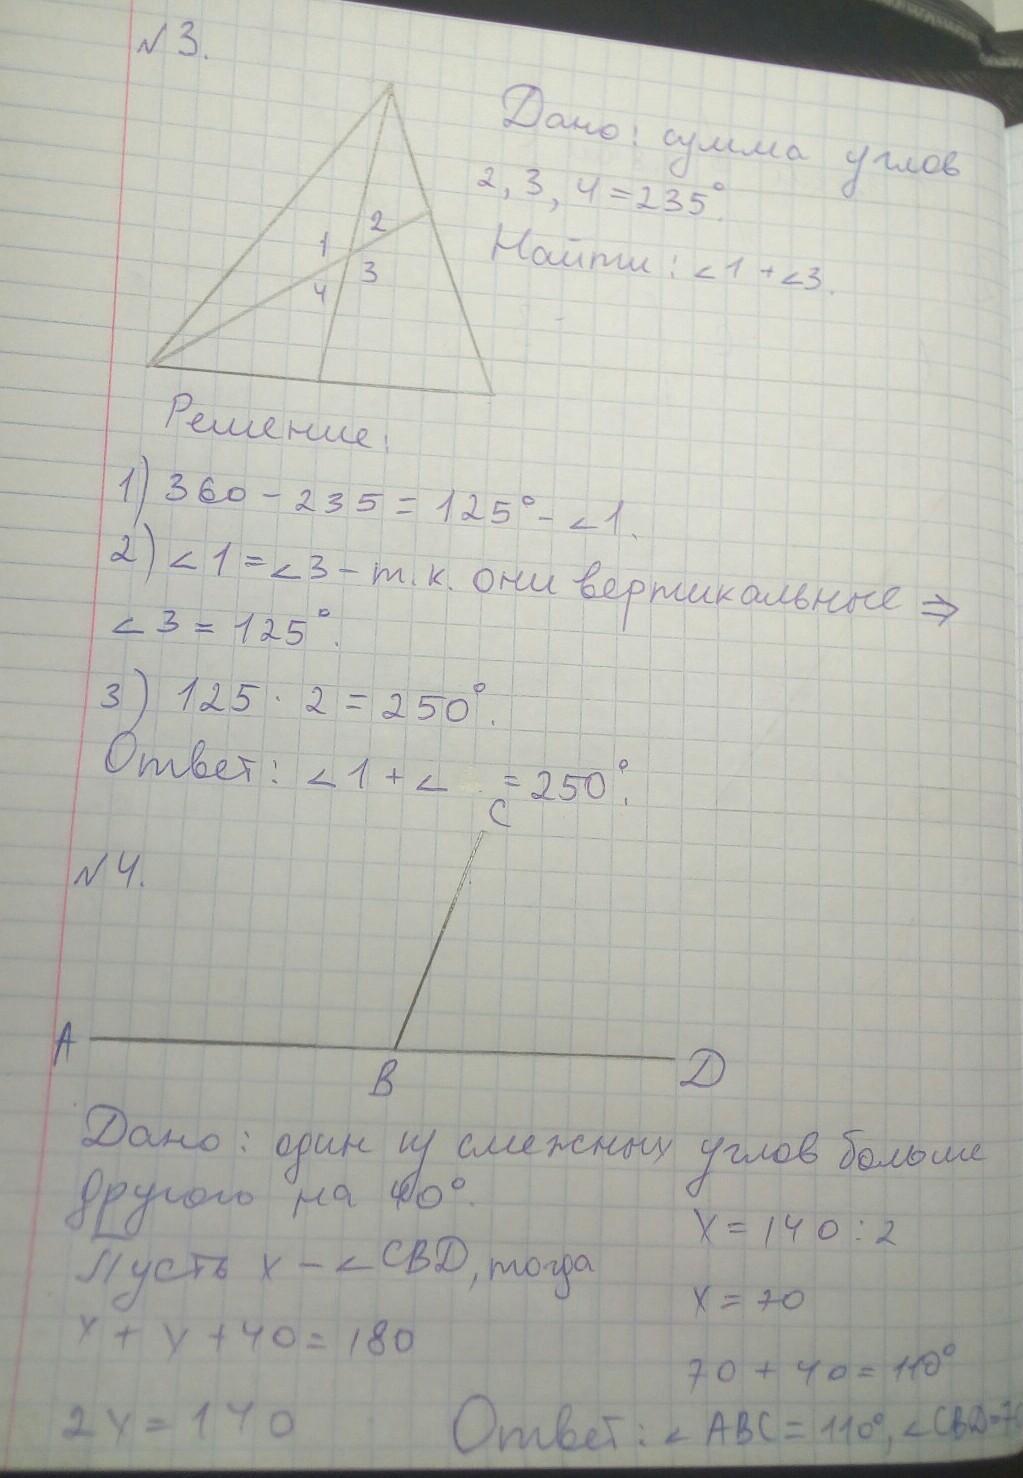 №3.
Дано: сумма углов
2, 3, 4 = 235°.
Найти: ∠1 + ∠3.
1 2
4 3
Решение:
1) 360 - 235 = 125° - ∠1.
2) ∠1 = ∠3 - т.к. они вертикальные ⇒
∠3 = 125°.
3) 125 · 2 = 250°.
Ответ: ∠1 + ∠ = 250°.
№4.
C
A
B
D
Дано: один из смежных углов больше
другого на 40°.
Пусть x - ∠CBD, тогда
x + x + 40 = 180
2x = 140
x = 140 : 2
x = 70
70 + 40 = 110°
Ответ: ∠ABC = 110°, ∠CBD=70